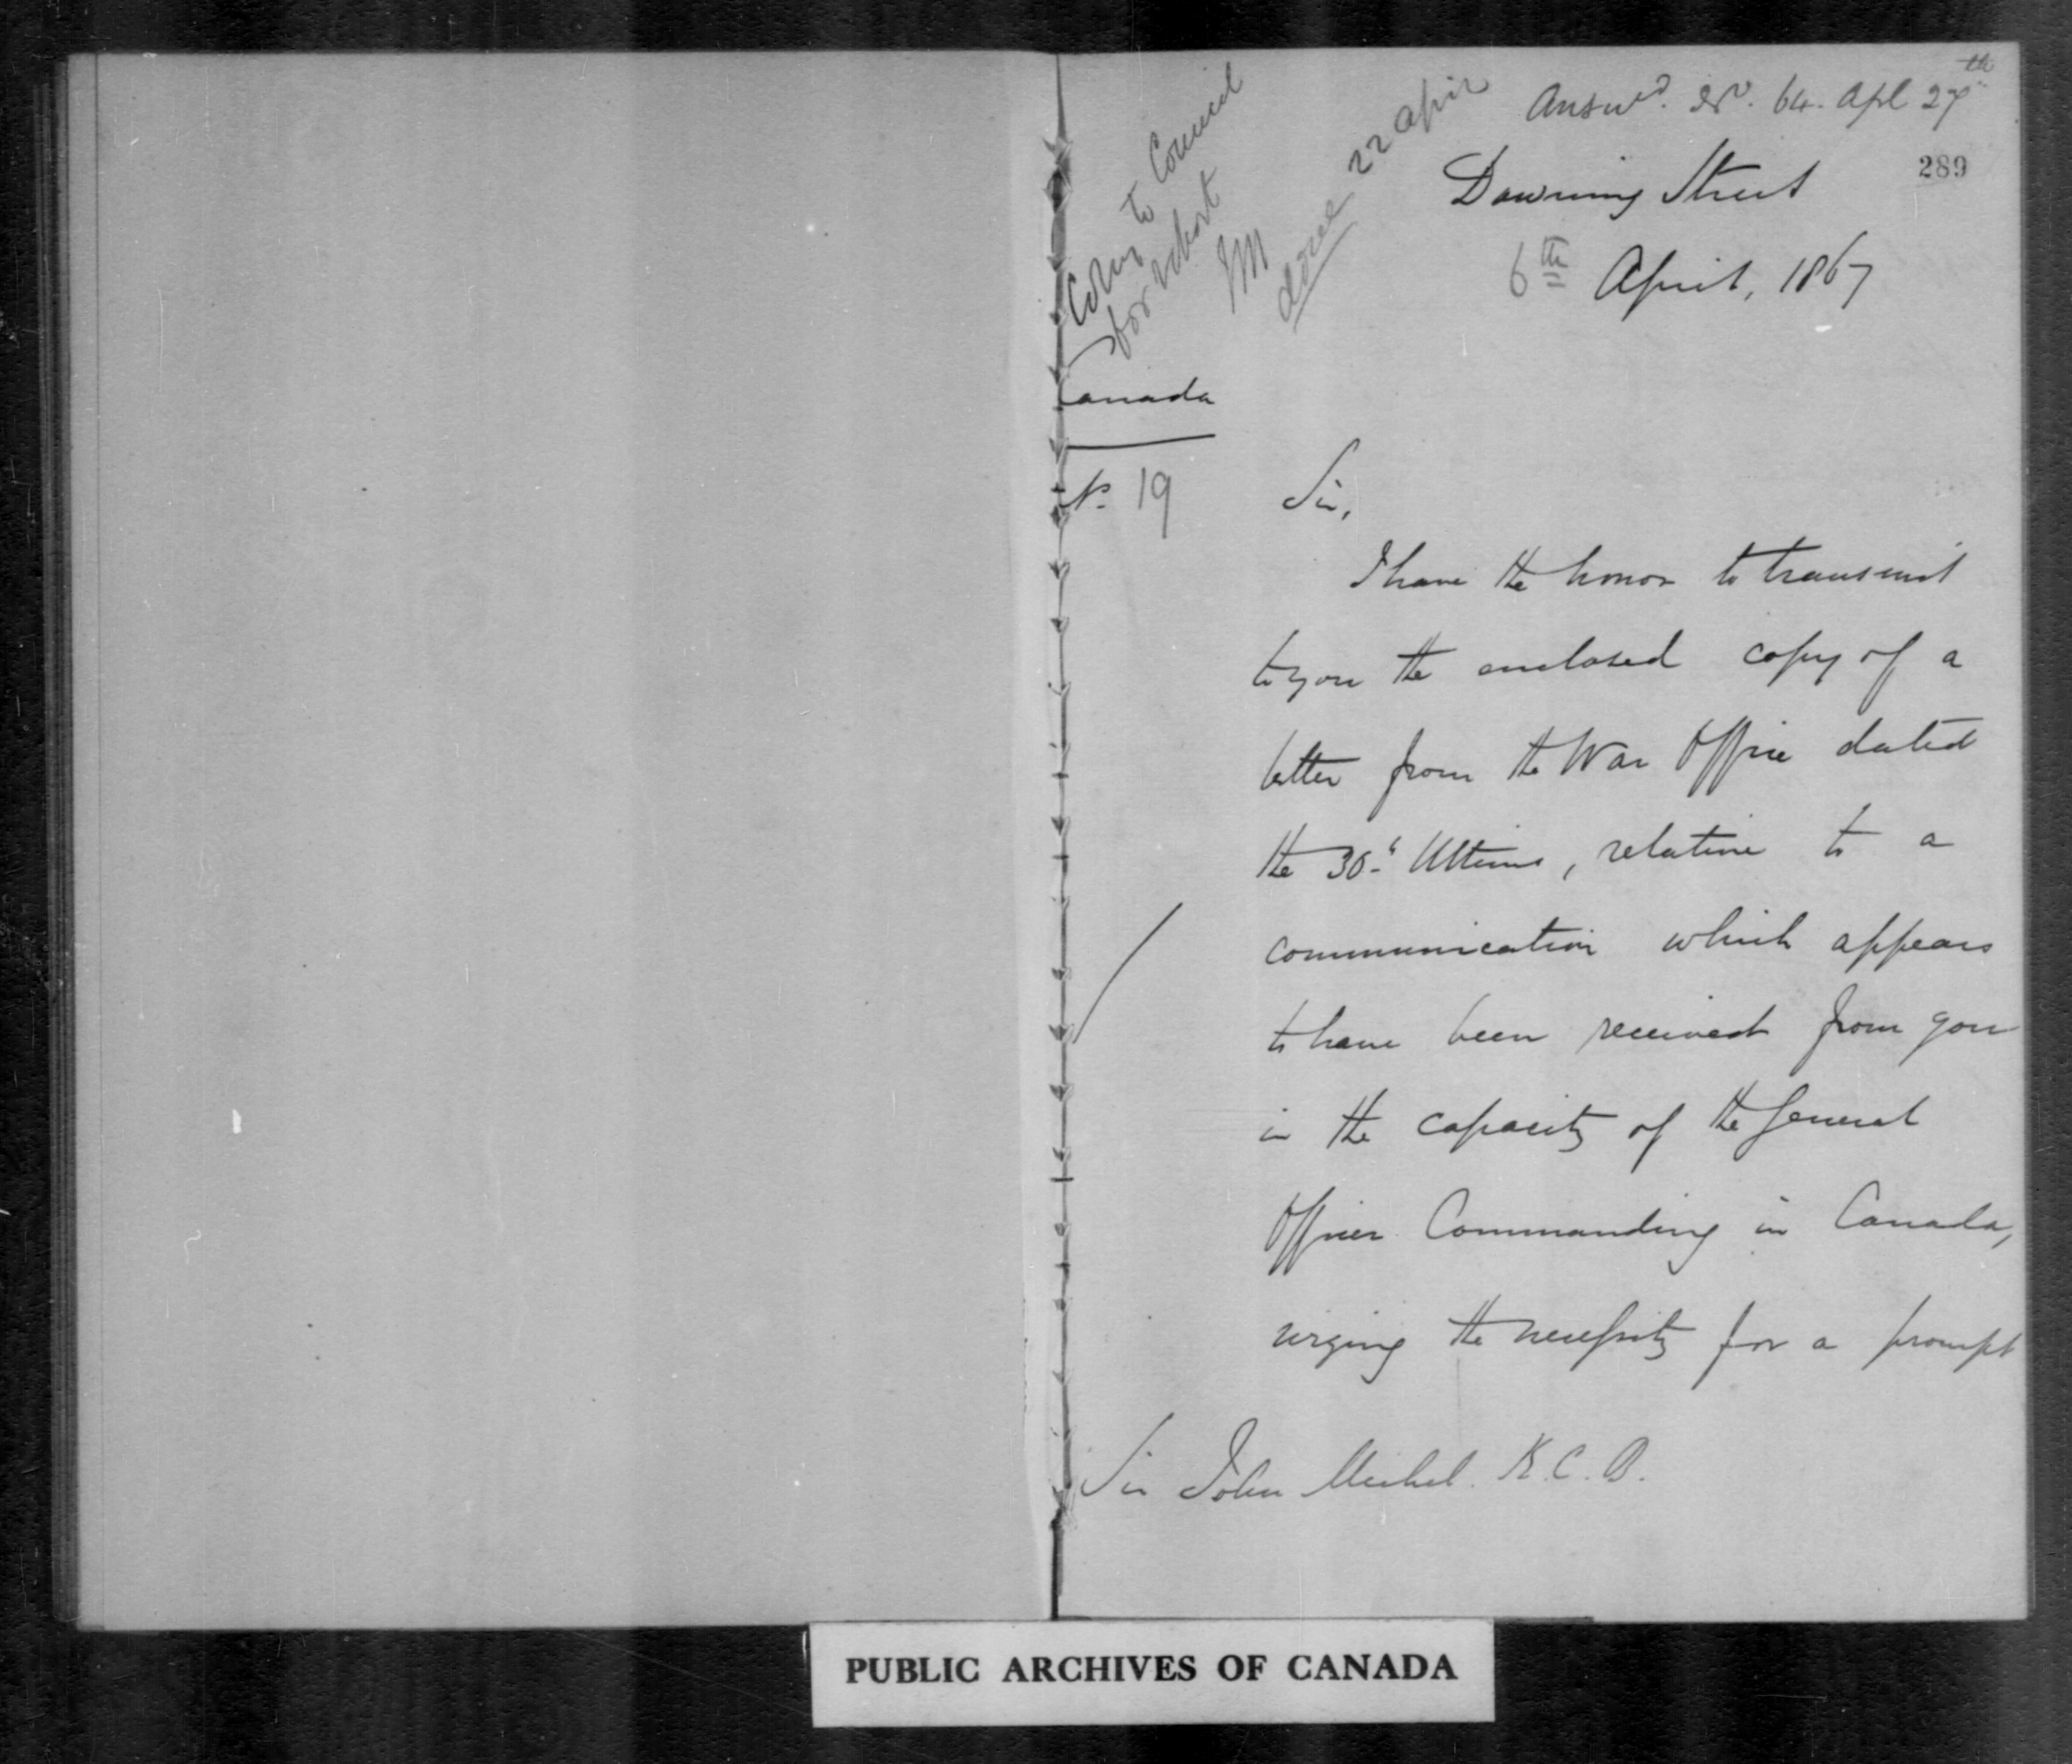 Answd. No. 64. Apl 27th
289
Copy to Council
for report
JM
done 22 April
Downing Street
6th April, 1867
Canada
No. 19
Sir,
I have the honor to transmit
to you the enclosed copy of a
letter from the War Office dated
the 30th Ultimo, relative to a
communication which appears
to have been received from you
in the capacity of the General
Officer Commanding in Canada,
urging the necessity for a prompt
Sir John Michel. K.C.B.
PUBLIC ARCHIVES OF CANADA